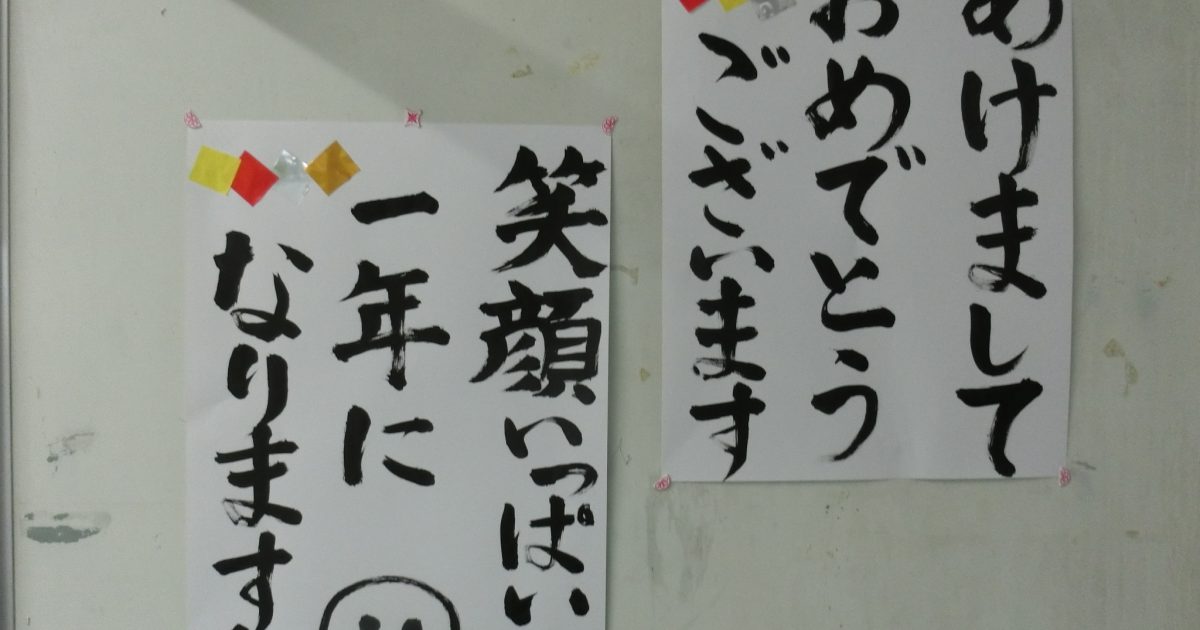 あけまして
おめでとう
ございます
笑顔いっぱい
一年に
なります